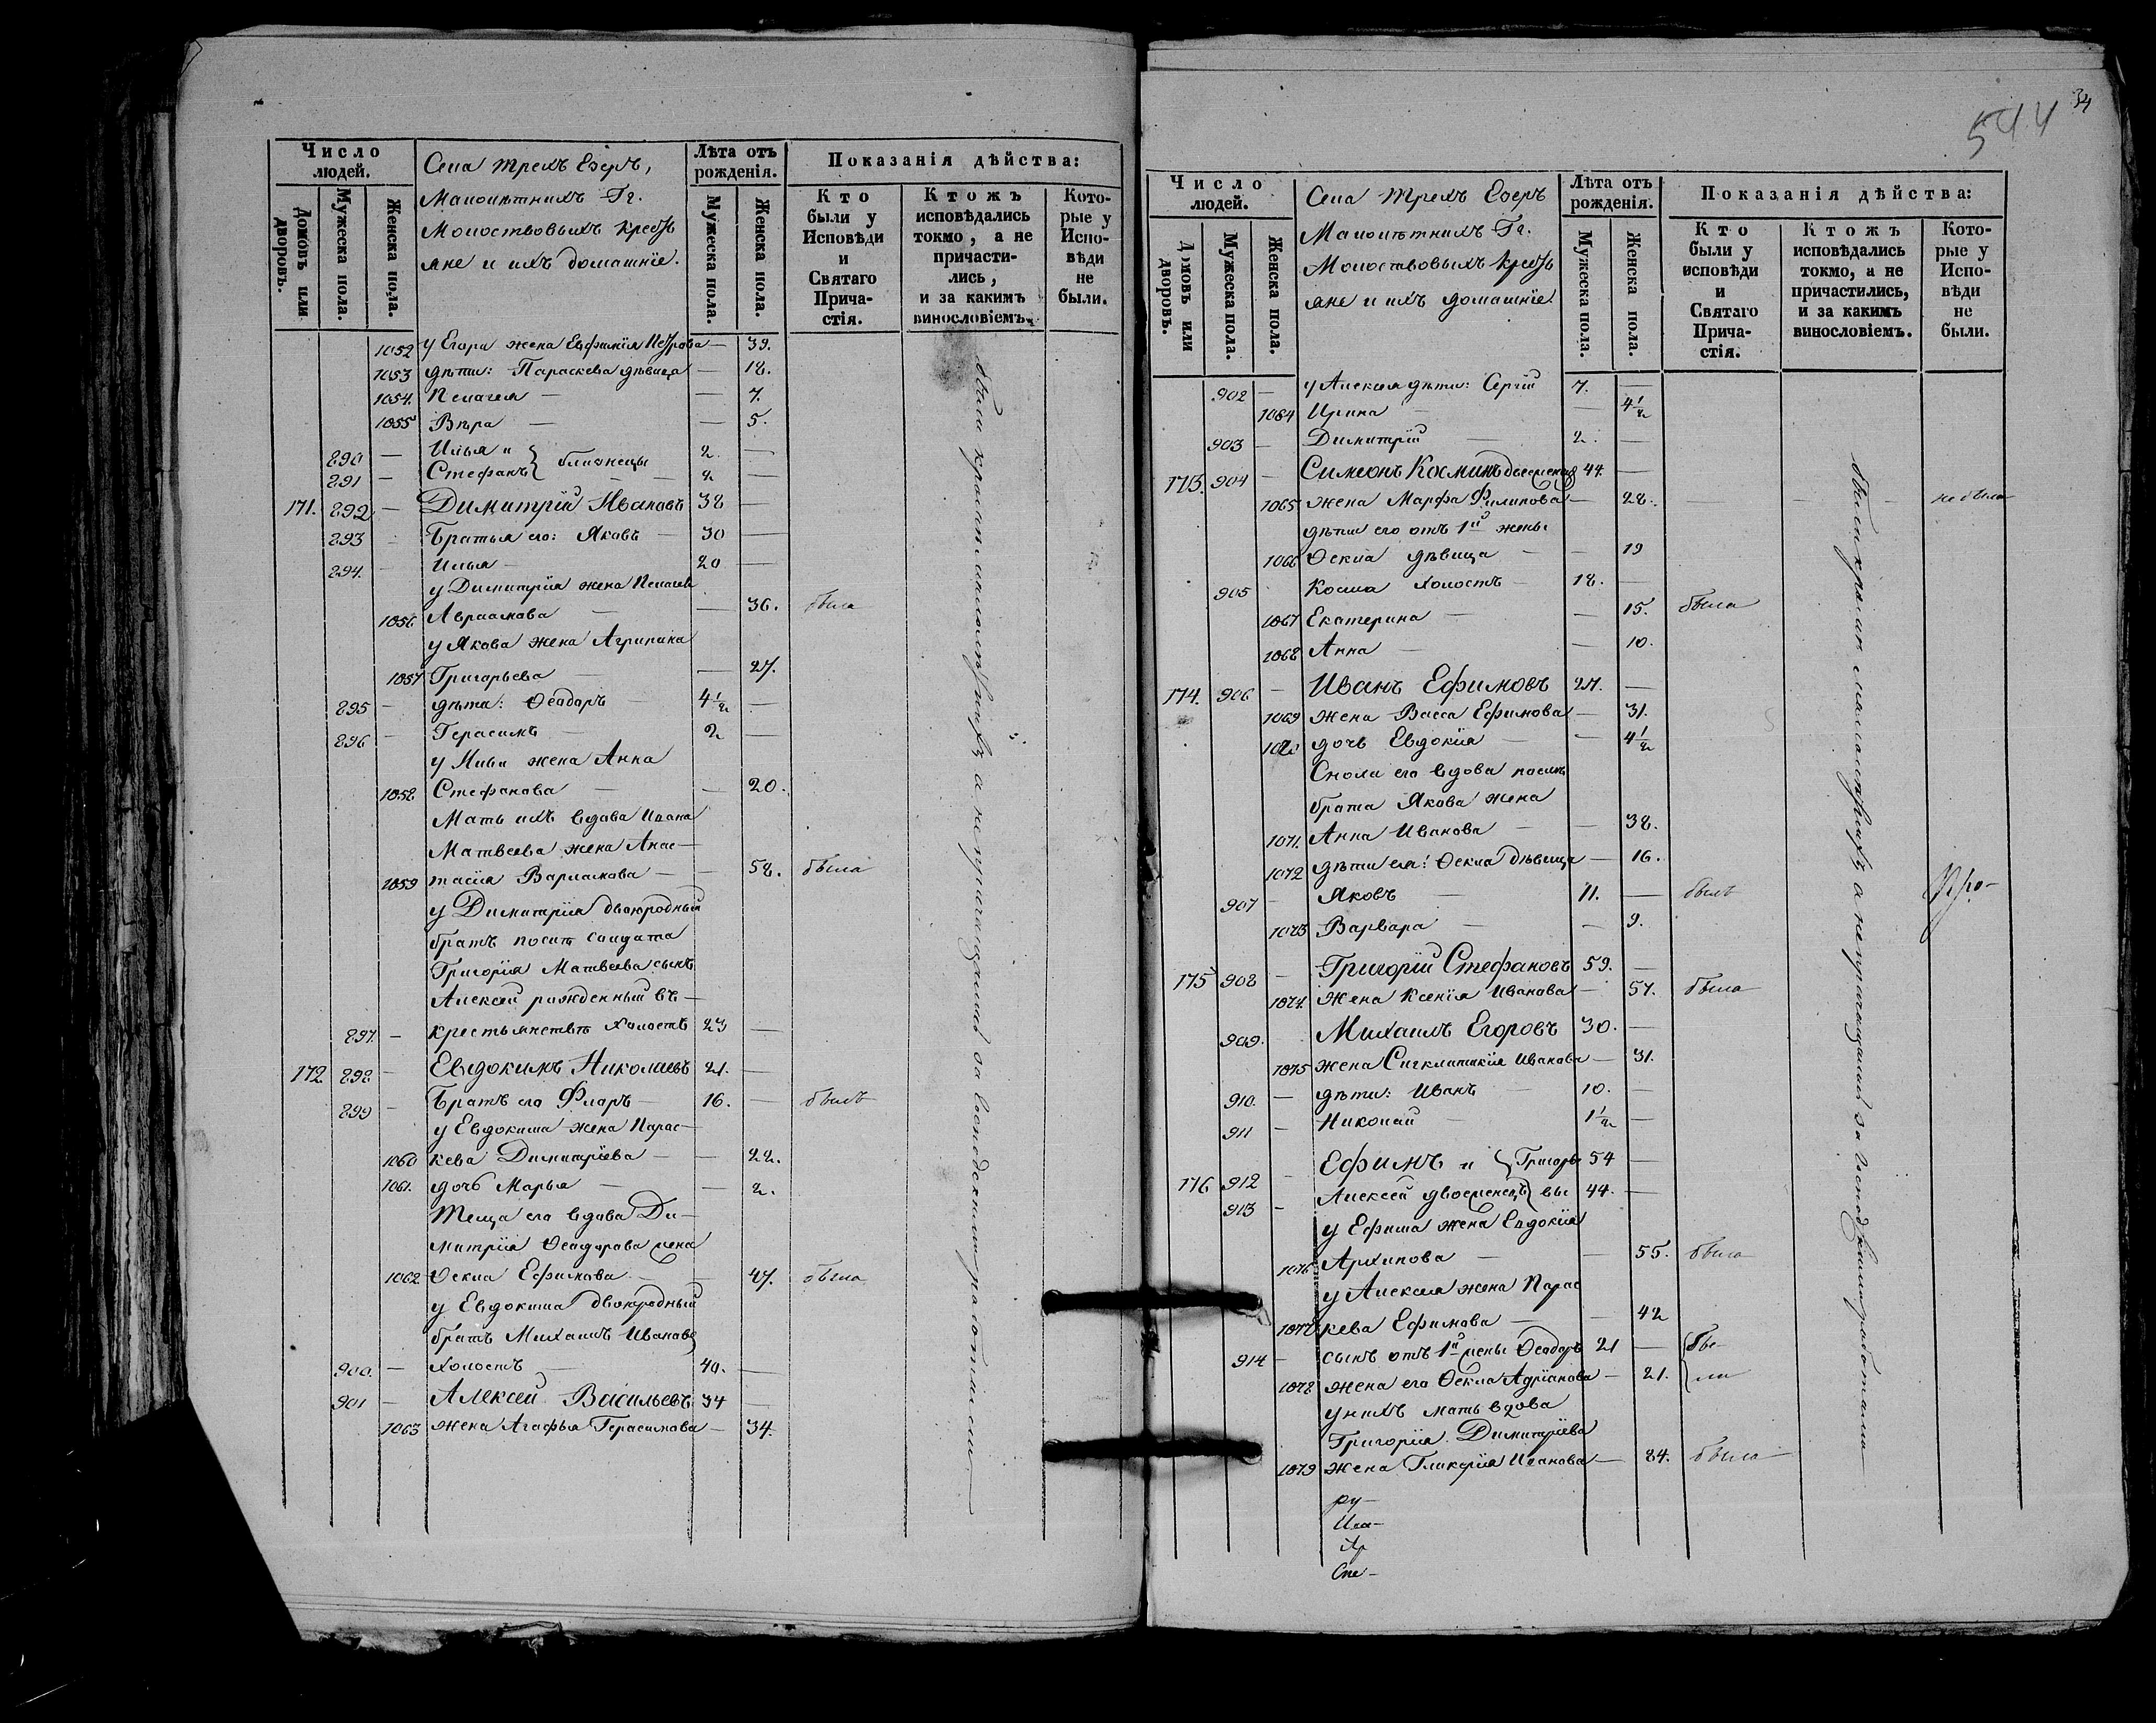 Число людей.
Домовъ или дворовъ.
Мужеска пола.
Женска пола.
Села Трехъ Езеръ,
Малолѣтнихъ Гг.
Молоствовыхъ кресть
яне и ихъ домашніе.
Лѣта отъ рожденія.
Мужеска пола.
Женска пола.
Показанія дѣйства:
Кто были у Исповѣди и Святаго Причастія.
Ктожъ исповѣдались токмо, а не причастились, и за какимъ винословіемъ.
Которые у Исповѣди не были.
1052 у Егора жена Евфимія Петрова — 39.
1053 дѣти: Параскева дѣвица — 18.
1054. Пелагея — — 7.
1055 Вѣра — — 5.
890 — Илья и } близнецы 2. —
891 — Стефанъ 2 —
171. 892 — Димитрій Ивановъ 38 —
893 Братья его: Яковъ — 30 —
894. — Илья — 20 —
у Димитрія жена Пелагея
1056 Авраамова — — 36. была
у Якова жена Агрипина
1057 Григорьева — — 27.
895 — дѣти: Ѳеодоръ — 4 1/2 —
896 — Герасимъ — 2 —
у Ильи жена Анна
1058 Стефанова — — 20.
Мать ихъ вдова Ивана
Матвеева жена Анас-
1059 тасія Варламова — — 58. была
у Димитрія двоюродный
братъ послѣ солдата
Григорія Матвеева сынъ
Алексей рожденный въ —
897. — крестьянствѣ холостъ 23 —
172 898 — Евдокимъ Николаевъ 21. —
899 — Братъ его Флоръ — 16. — былъ
у Евдокима жена Парас-
1060 кева Димитріева — — 22.
1061. дочь Марья — — 2.
Теща его вдова Ди-
митрія Ѳеодорова жена
1062 Ѳекла Ефимова — — 47. была
у Евдокима двоюродный
братъ Михаилъ Ивановъ
900. — холостъ — 40. —
901 — Алексей Васильевъ 34 —
1063 жена Агафья Герасимова — 34.
были кромѣ малолѣтнихъ а непричащались за господскими работами
544
34
Число людей.
Домовъ или дворовъ.
Мужеска пола.
Женска пола.
Села Трехъ Езеръ
Малолѣтнихъ Гг.
Молоствовыхъ кресть
яне и ихъ домашніе
Лѣта отъ рожденія.
Мужеска пола.
Женска пола.
Показанія дѣйства:
Кто были у исповѣди и Святаго Причастія.
Ктожъ исповѣдались токмо, а не причастились, и за какимъ винословіемъ.
Которые у Исповѣди не были.
902 — у Алексея дѣти: Сергій 7. —
1064 Ирина — — 4 1/2
903 — Димитрій — 2. —
173. 904 — Симеонъ Косминъ двоеженецъ 44. —
1065 жена Марфа Филипова — 28. — — — не была
дѣти его отъ 1й жены
1066 Ѳекла дѣвица — — 19
905 Косма холостъ — 18. —
1067 Екатерина — — 15. была
1068 Анна — — 10.
174. 906 — Иванъ Ефимовъ 27. —
1069 жена Васса Ефимова — 31.
1070 дочь Евдокія — — 4 1/2
Сноха его вдова послѣ
брата Якова жена
1071. Анна Иванова — — 38.
1072 дѣти ея: Ѳекла дѣвица — 16.
907 — Яковъ — 11. — былъ
1073 Варвара — — 9.
175 908 — Григорій Стефановъ 59. —
1074. жена Ксенія Иванова — 57. была
909. Михаилъ Егоровъ 30. —
1075 жена Сигклитикія Иванова — 31.
910. — дѣти: Иванъ — 10. —
911 — Николай — 1 1/2 —
176 912 — Ефимъ и } Григорь 54 —
913 — Алексей двоеженецъ } вы 44. —
у Ефима жена Евдокія
1076 Архипова — — 55. была
у Алексея жена Парас
1077 кева Ефимова — — 42
914 — сынъ отъ 1й жены Ѳеодоръ 21 — бы-
1078 жена его Ѳекла Адріанова — 21. ли
у нихъ мать вдова
Григорія Димитріева
1079 жена Гликерія Иванова — 84. была —
были кромѣ малолѣтнихъ а непричащались за господскими работами
ру-
Ар